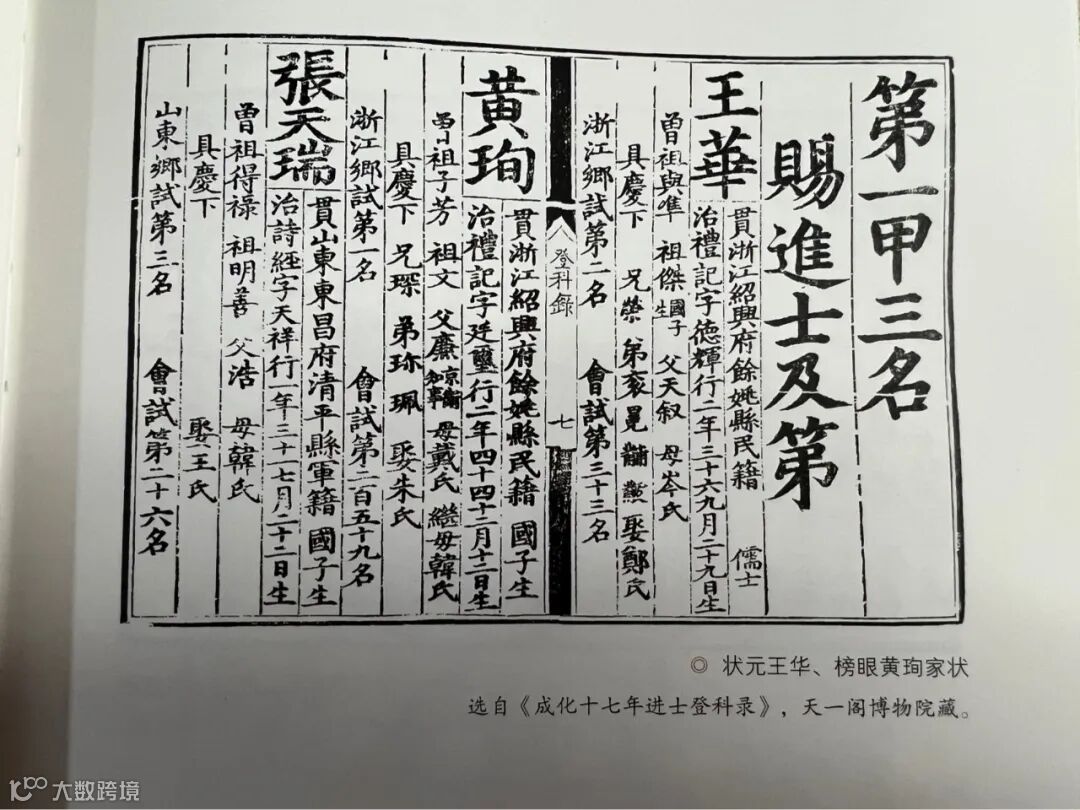 第一甲三名
賜進士及第
王華
貫浙江紹興府餘姚縣民籍 儒士
治禮記字德輝行二年三十六九月二十九日生
曽祖與準 祖傑國子生 父天叙 母岑氏
具慶下 兄榮 弟衮冕黼黻 娶鄭氏
浙江鄉試第二名 會試第三十三名
登科錄
七
黄珣
貫浙江紹興府餘姚縣民籍 國子生
治禮記字廷璽行二年四十四十二月十二日生
曽祖子芳 祖文 父廉 母戴氏 繼母韓氏
具慶下 兄琛 弟珎珮 娶朱氏
浙江鄉試第一名 會試第二百五十九名
張天瑞
貫山東東昌府清平縣軍籍 國子生
治詩經字天祥行一年三十一七月二十二日生
曽祖得祿 祖明善 父浩 母韓氏
具慶下 娶王氏
山東鄉試第三名 會試第二十六名
◎ 状元王华、榜眼黄珣家状
选自《成化十七年进士登科录》，天一阁博物院藏。
大数跨境